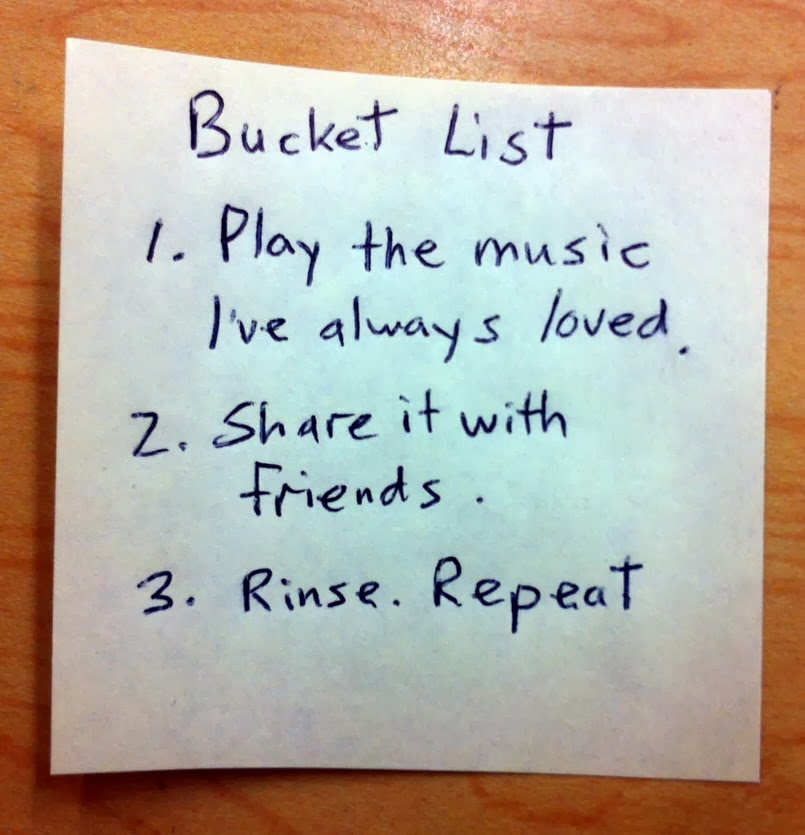 Bucket List
1. Play the music
I've always loved.
2. Share it with
friends.
3. Rinse. Repeat